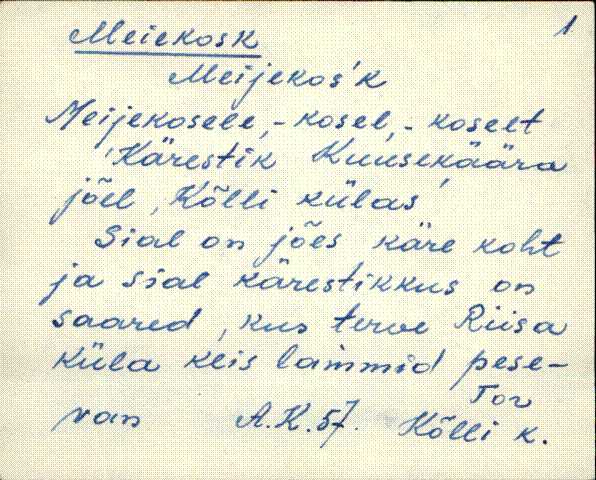 Meiekosk 1
Meijekos'k
Meijekosele, -kosel, -koselt
'Kärestik Kuusekäära
jõel, Kõlli külas'
Sial on jões käre koht
ja sial kärestikkus on
saared, kus terve Riisa
küla keis lammid pese-
Tor
van A.K.57. Kõlli k.